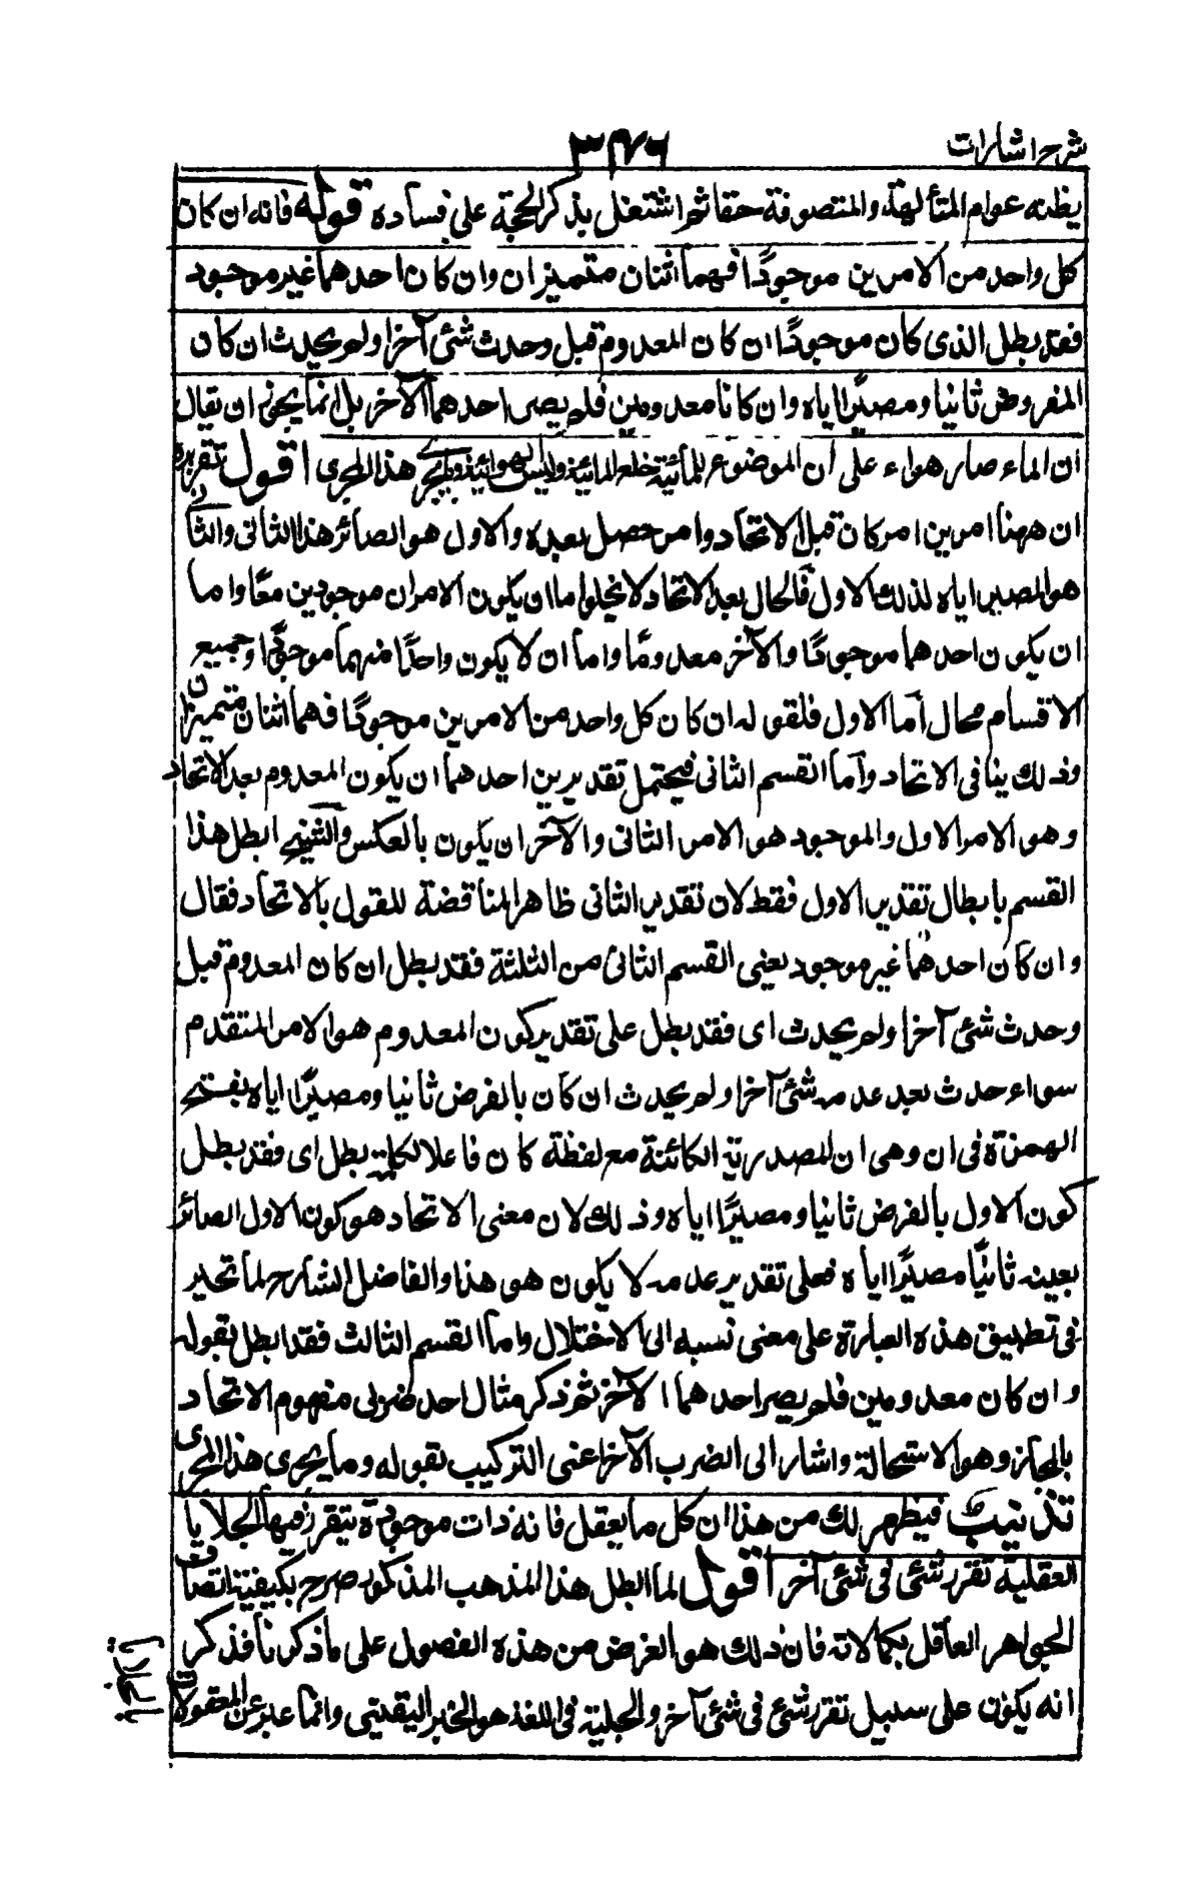 شرح اشارات
۳۴۶
يظنه عوام المتألهة والمتصوفة حقا ثم اشتغل بذكر الحجة على فساده قوله فانه ان كان
كل واحد من الامرين موجودًا فهما اثنان متميزان وان كان احدهما غير موجود
فقد بطل الذى كان موجودًا ان كان المعدوم قبل وحدث شئ آخر او لم يحدث ان كان
المفروض ثانيا ومصيرًا اياه وان كانا معدومين فلم يصر احدهما الآخر بل انما يجوز ان يقال
ان الماء صار هواء على ان الموضوع للمائية خلع المائية ولبس الهوائية وما يجرى هذا المجرى اقول تقريره
ان ههنا امرين امر كان قبل الاتحاد وامر حصل بعده والاول هو الصائر هذا الثانى والثانى
هو المصير اياه لذلك الاول فالحال بعد الاتحاد لا يخلوا ما ان يكون الامران موجودين معًا واما
ان يكون احدهما موجودًا والآخر معدومًا واما ان لا يكون واحدًا منهما موجودًا وجميع
الاقسام محال أما الاول فلقوله ان كان كل واحد من الامرين موجودًا فهما اثنان متميزان
وذلك ينافى الاتحاد وأما القسم الثانى فيحتمل تقديرين احدهما ان يكون المعدوم بعد الاتحاد
وهو الامر الاول والموجود هو الامر الثانى والآخر ان يكون بالعكس والشيخ ابطل هذا
القسم بابطال تقدير الاول فقط لان تقدير الثانى ظاهر المناقضة للقول بالاتحاد فقال
وان كان احدهما غير موجود يعنى القسم الثانى من الثلثة فقد بطل ان كان المعدوم قبل
وحدث شئ آخر او لم يحدث اى فقد بطل على تقدير كون المعدوم هو الامر المتقدم
سواء حدث بعد عدمه شئ آخر او لم يحدث ان كان بالفرض ثانيا ومصيرًا اياه بفتح
الهمزة فى ان وهى ان المصدرية الكائنة مع لفظة كان فاعلا لكلمة بطل اى فقد بطل
كون الاول بالفرض ثانيا ومصيرًا اياه وذلك لان معنى الاتحاد هو كون الاول الصائر
بعينه ثانيًا مصيرًا اياه فعلى تقدير عدمه لا يكون هو هذا والفاضل الشارح لما تحير
فى تطبيق هذه العبارة على معنى نسبه الى الاختلال واما القسم الثالث فقد ابطل بقوله
وان كان معدومين فلم يصر احدهما الآخر ثم ذكر مثال احد ضربى مفهوم الاتحاد
بالمجاز وهو الاستحالة واشار الى الضرب الآخر اعنى التركيب بقوله وما يجرى هذا المجرى
تذنيب فيظهر لك من هذا ان كل ما يعقل فانه ذات موجودة يتقرر فيها الجلايا
العقلية تقرر شئ فى شئ آخر اقول لما ابطل هذا المذهب المذكور صرح بكيفية اتصاف
الجواهر العاقل بكمالاته فان ذلك هو الغرض من هذه الفصول على ما ذكرنا فذكر
انه يكون على سبيل تقرر شئ فى شئ آخر والجلية فى اللغة هو الخبر اليقينى وانما عبر عن المعقولات
بالجلايا